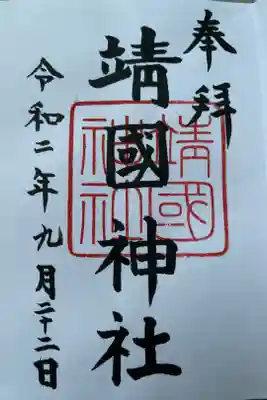 奉拝
靖國神社
靖國
神社
令和二年九月二十二日